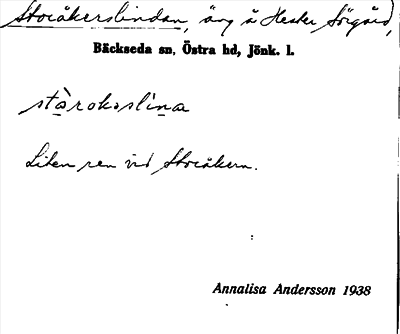 Storåkerslindan, äng å Hester Sörgård,
Bäckseda sn, Östra hd, Jönk. l.
stàrokəslìna
Liten ren vid Storåkern.
Annalisa Andersson 1938